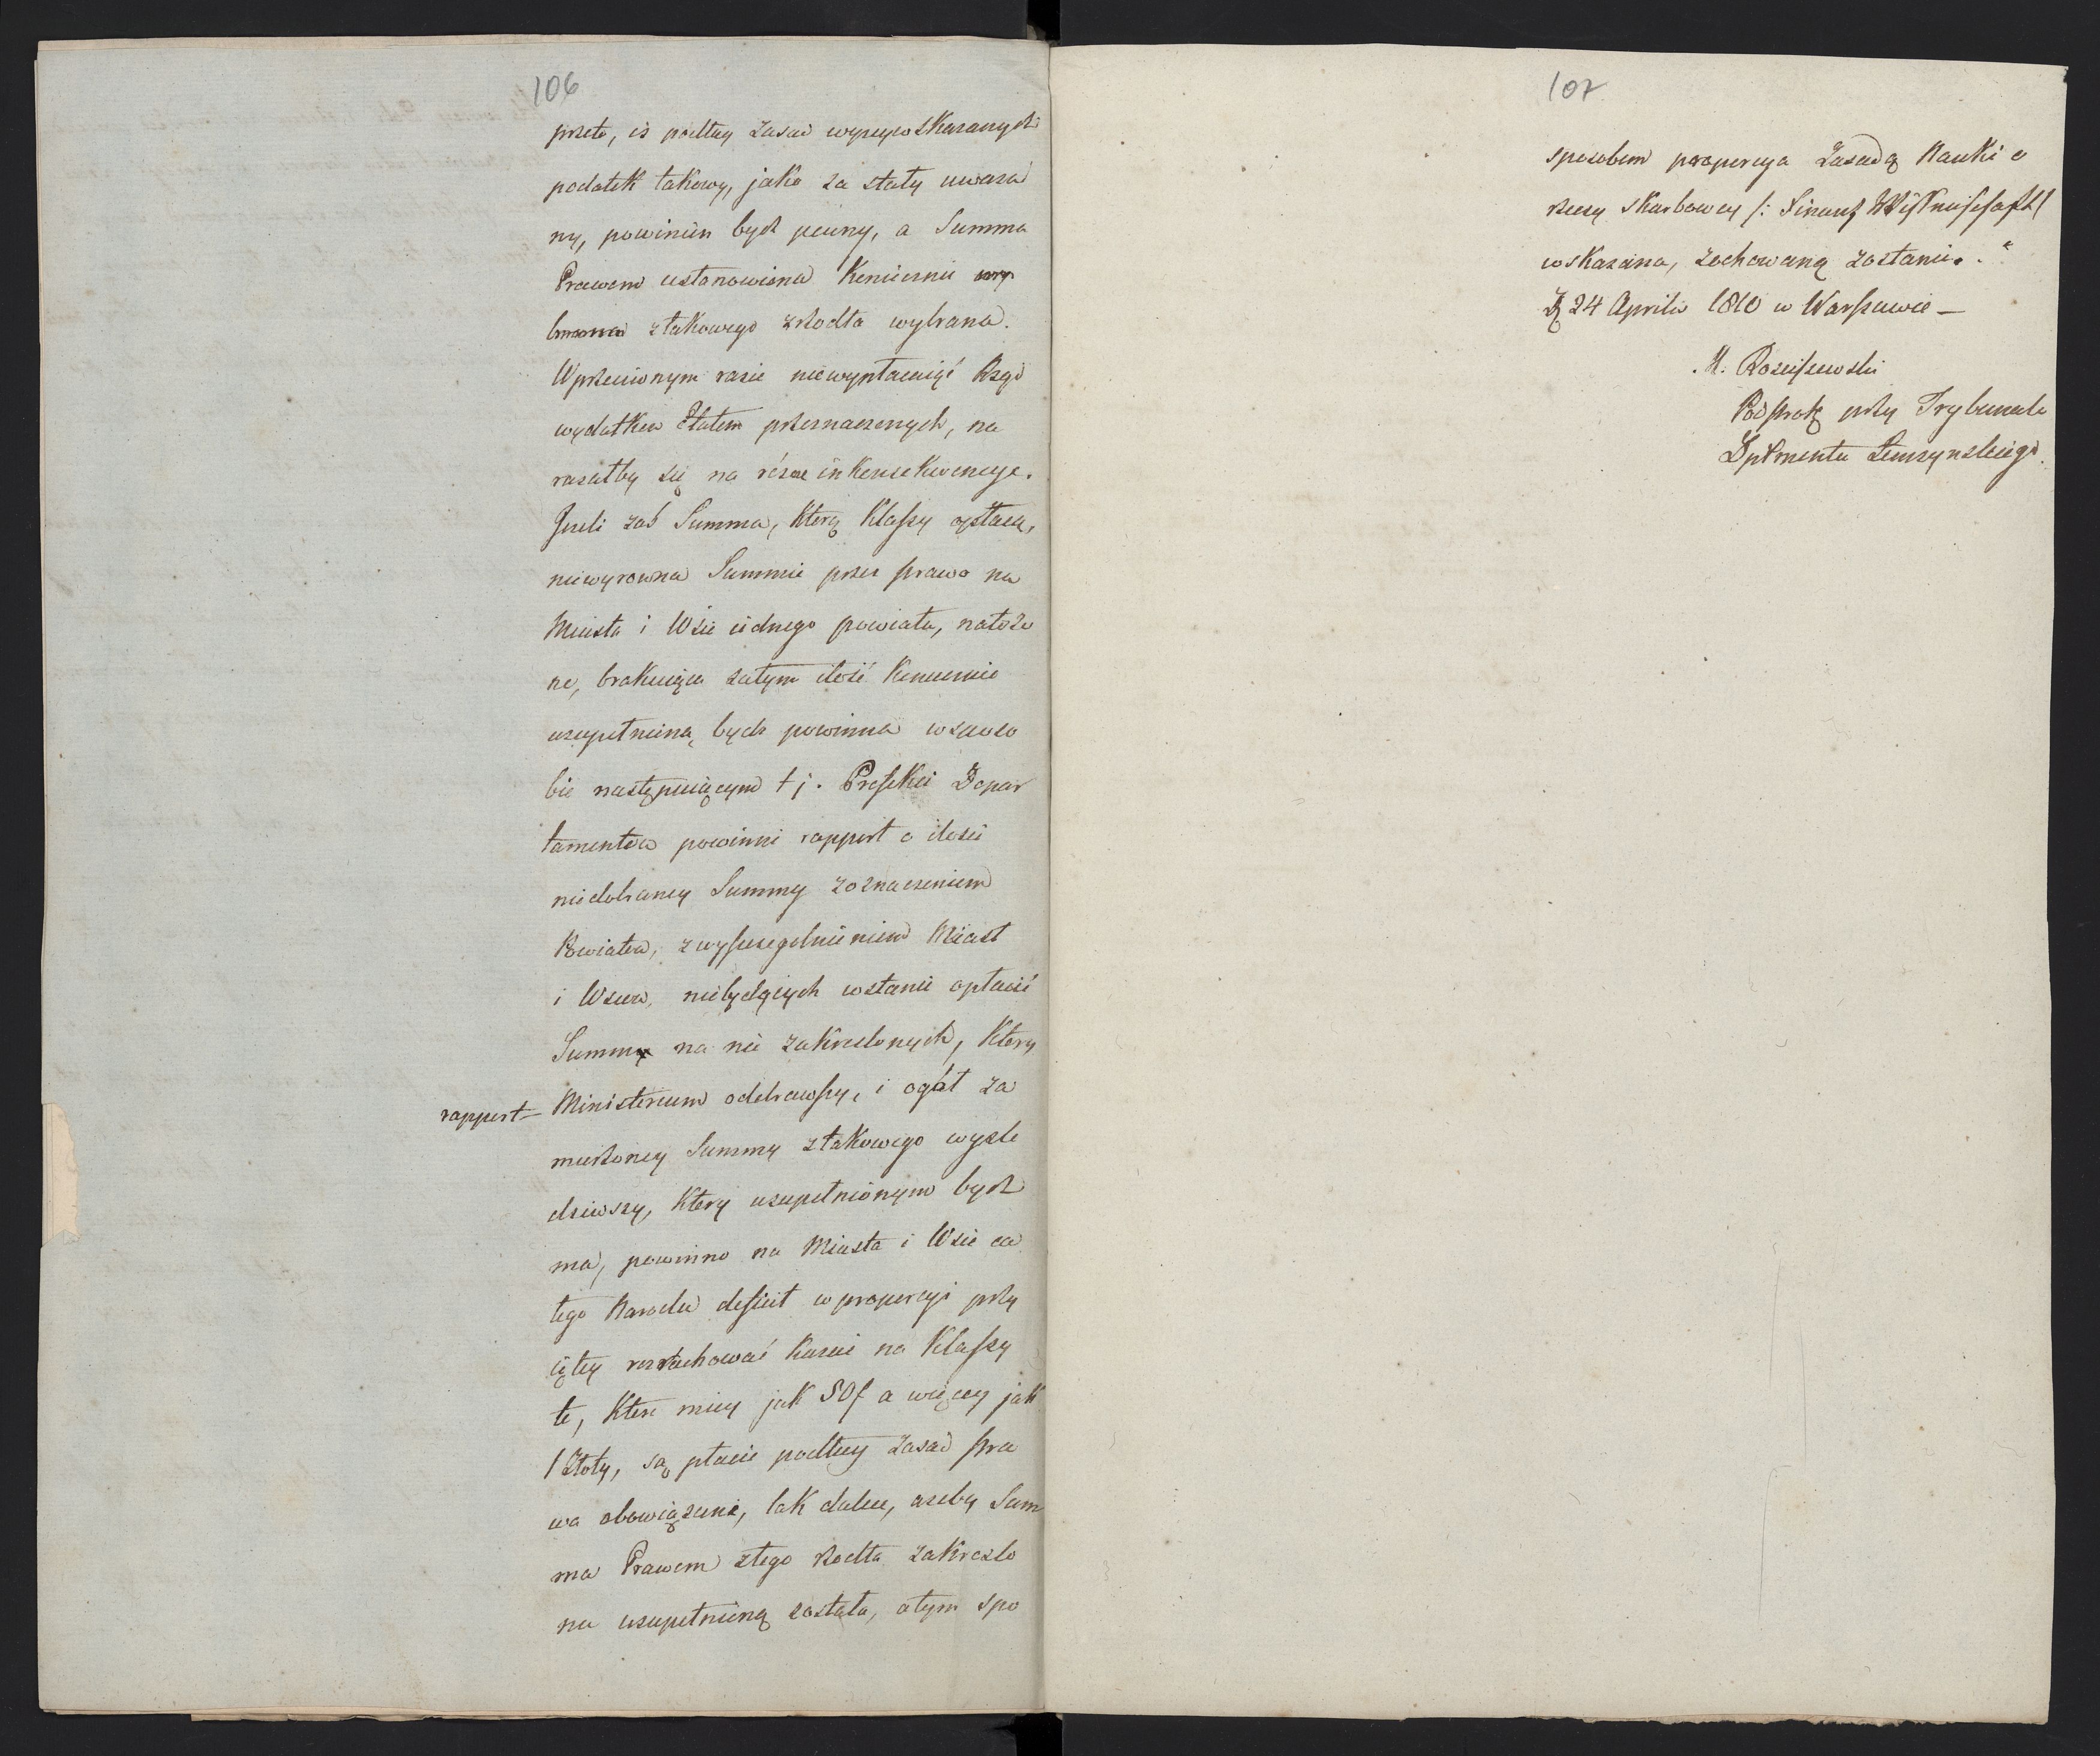 106
przeto, iz podług zasad wyzey wskazanych
podatek takowy, jako za stały uwaza
ny, powinien bydz pewny, a Summa
Prawem ustanowiona koniecznie
z takowego zrzodła wybrana.
W przeciwnym razie niewypłaciąć Rząd
wydatkow Etatem przeznaczonych, na
razałby się na rózne inkonsekwencye.
Jezeli zaś Summa, którą Klassy opłacą,
niewyrowna Summie przez prawo na
Miasta i Wsie iednego powiatu, nałozo
ne, brakuiąca zatym ilość koniecznie
uzupełnioną bydz powinna w sposo
bie następuiącym t j. Prefekci Depar
tamentow powinni rapport o ilosci
niedobraney Summy z oznaczeniem
Powiatow, z wyszczegolnieniem Miast
i Wsiow, niebędących w stanie opłacić
Summ na nie zakreslonych, który
rapport Ministerium odebrawszy, i ogół za
mierzoney Summy z takowego wysle
dziwszy, który uzupełnionym bydz
ma, powinno na Miasta i Wsie ca
łego Narodu deficit w proporcyi przy
iętey rozrachować kazać na Klassy
te, które mniey jak 50f a więcey jak
1 złoty, są płacić podług zasad pra
wa obowiązane, tak dalece, azeby Sum
ma Prawem z tego zrzodła zakreslo
na uzupełnioną została, a tym spo
107
sposobem proporcya Zasadą Nauki o
rzeczy skarbowey /: Finanz Wißenschaft /
wskazana, zachowaną zostanie.
D 24 Aprilis 1810 w Warszawie —
M. Rosciszewski
Podprok przy Trybunale
Dptmentu Łomzynskiego.